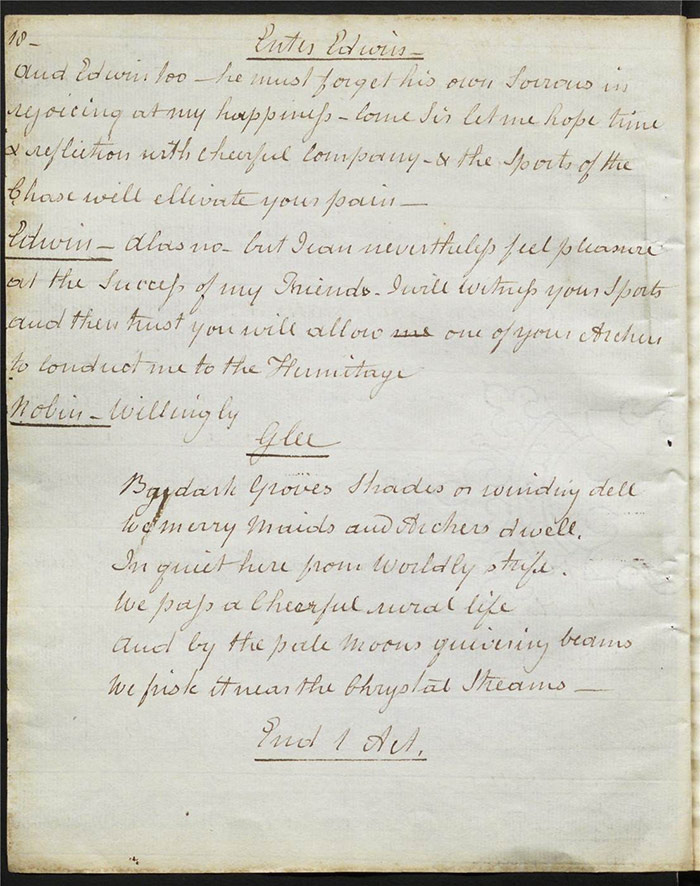 18-
Enter Edwin-
and Edwin too - he must forget his own Sorrows in
rejoicing at my happiness - Come Sir let me hope time
& reflection with cheerful Company - & the Sports of the
Chase will elliviate your pain -
Edwin - Alas no - but I can nevertheless feel pleasure
at the Success of my Friends - I will witness your Sports
and then trust you will allow me one of your Archers
to conduct me to the Hermitage
Robin - Willingly
Glee
By dark Groves Shades or winding dell
We merry Maids and Archers dwell.
In quiet here from Worldly strife.
We pass a Cheerful rural life
And by the pale Moons quivering beams
We frisk it near the Chrystal Streams -
End 1 Act.